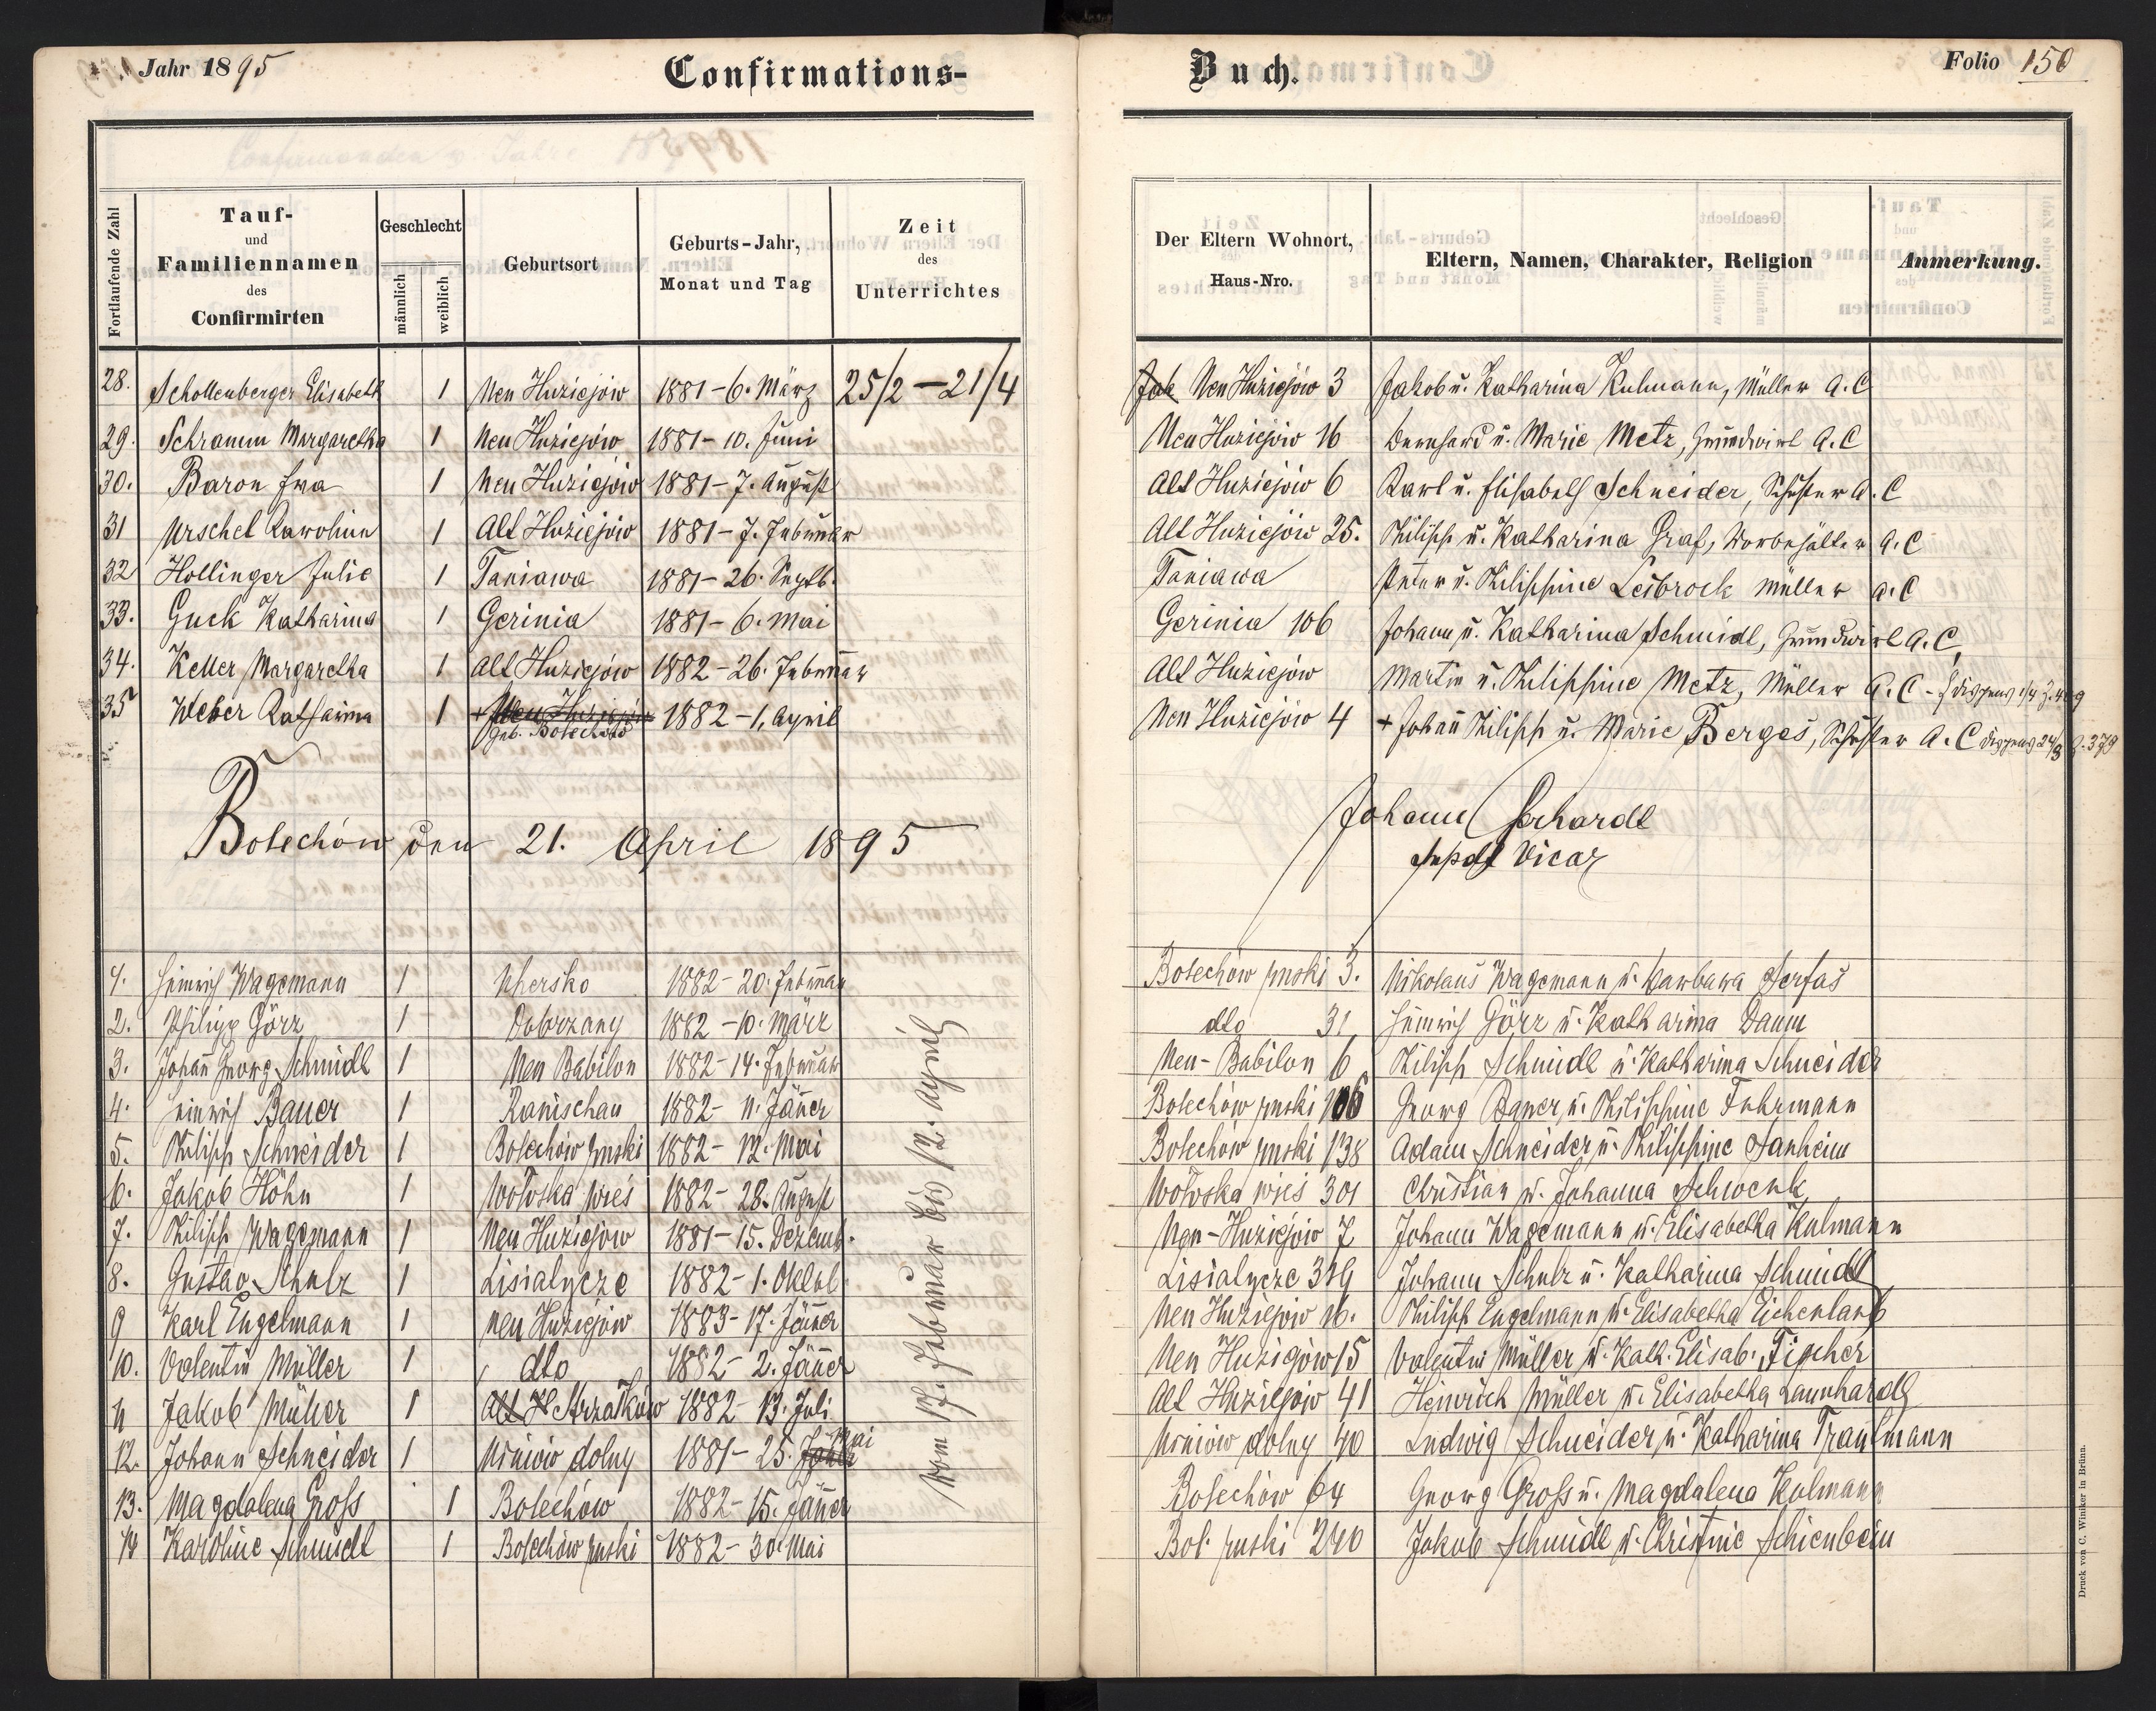 Jahr 1895 Confirmations- Buch. Folio 150
Fortlaufende Zahl
Tauf- und Familiennamen des Confirmirten
Geschlecht
männlich
weiblich
Geburtsort
Geburts-Jahr, Monat und Tag
Zeit des Unterrichtes
Der Eltern Wohnort, Haus-Nro.
Eltern, Namen, Charakter, Religion
Anmerkung.
28. Schollenberger Elisabeth 1 Neu Huziejów 1881-6. März 25/2-21/4 Neu Huziejów 3 Jakob u. Katharina Kulmann, Müller A.C
29. Schramm Margaretha 1 Neu Huziejów 1881-10. Juni Neu Huziejów 16 Bernhard u. Marie Metz, Grundwirt A.C
30. Baron Eva 1 Neu Huziejów 1881-7. August Alt Huziejów 6 Karl u. Elisabeth Schneider, Schuster A.C
31 Urschel Karoline 1 Alt Huziejów 1881-7. Februar Alt Huziejów 25. Philipp u. Katharina Graf, A.C
32 Hollinger Julie 1 Taniawa 1881-26. Septb. Taniawa Peter u. Philippine Leibrock Müller A.C
33. Guck Katharina 1 Gerinia 1881-6. Mai Gerinia 106 Johann u. Katharina Schmidt, Grundwirt A.C,
34. Keller Margaretha 1 Alt Huziejów 1882-26. Februar Alt Huziejów Martin u. Philippine Metz, Müller A.C
35 Weber Katharina 1 + Neu Huziejów geb. Bolechów 1882-1. April Neu Huziejów 4 + Johann Philipp u. Marie Berges, Schuster A.C dispens 24/3 Z. 379
Bolechów den 21. April 1895
Johann
Vicar
1. Heinrich Wagemann 1 Uhersko 1882-20. Februar Bolechów ruski 3. Nikolaus Wagemann u. Barbara Serfas
2. Philipp Görz 1 Dobrzany 1882-10. März dto 31 Heinrich Görz u. Katharina Daum
3. Johann Georg Schmidt 1 Neu Babilon 1882-14. Februar Neu-Babilon 6 Philipp Schmidt u. Katharina Schneider
4. Heinrich Bauer 1 Ranischau 1882-11. Jänner Bolechów ruski 106 Georg Bauer u. Philippine Fuhrmann
5. Philipp Schneider 1 Bolechów ruski 1882-12. Mai Bolechów ruski 138 Adam Schneider u. Philippine Sanheim
6. Jakob Höhn 1 Wołoska wieś 1882-28. August Wołoska wieś 301 Christian u. Johanna Schwenk
7. Philipp Wagemann 1 Neu Huziejów 1881-15. Dezemb. Neu-Huziejów 7 Johann Wagemann u. Elisabetha Kulmann
8. Gustav Schulz 1 Lisiatycze 1882-1. Oktob. Lisiatycze 319 Johann Schulz u. Katharina Schmidt
9 Karl Engelmann 1 Neu Huziejów 1883-17. Jänner Neu Huziejów 16. Philipp Engelmann u. Elisabetha Eichenlaub
10. Valentin Müller 1 dto 1882-2. Jänner Neu Huziejów 15 Valentin Müller u. Kath. Elisab. Fischer
11 Jakob Müller 1 Alt H Strzałków 1882-13. Juli Alt Huziejów 41 Heinrich Müller u. Elisabetha Launhardt
12. Johann Schneider 1 Winiów dolny 1881-25. Mai Winiów dolny 40 Ludwig Schneider u. Katharina Trautmann
13. Magdalena Gross 1 Bolechów 1882-15. Jänner Bolechów 64 Georg Gross u. Magdalena Kulmann
14 Karoline Schmidt 1 Bolechów ruski 1882-30. Mai Bol. ruski 240 Jakob Schmidt u. Christine Schienbein
vom 17. Februar bis 12. April
Druck von C. Winiker in Brünn.